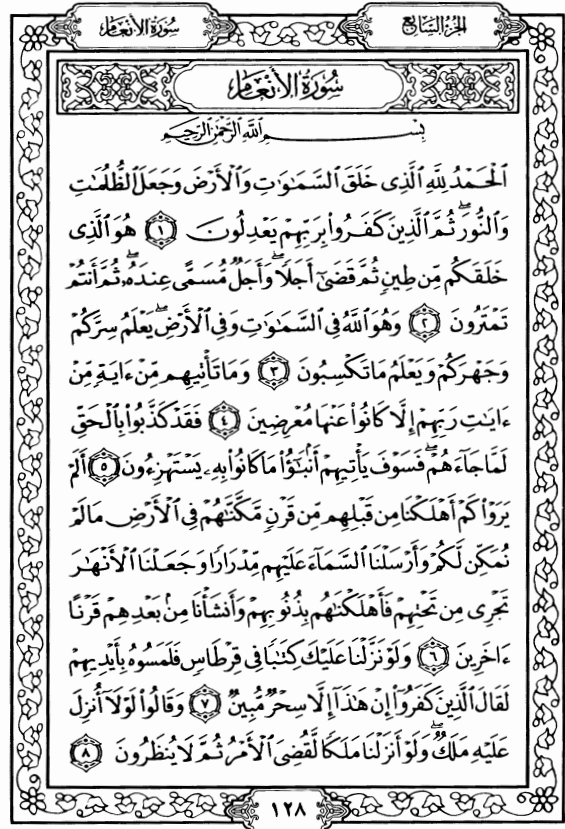 الجزء السابع
سورة الأنعام
سُورَةُ الأَنْعَامِ
بِسْمِ اللَّهِ الرَّحْمَٰنِ الرَّحِيمِ
الْحَمْدُ لِلَّهِ الَّذِي خَلَقَ السَّمَٰوَٰتِ وَالْأَرْضَ وَجَعَلَ الظُّلُمَٰتِ
وَالنُّورَ ۖ ثُمَّ الَّذِينَ كَفَرُوا بِرَبِّهِمْ يَعْدِلُونَ ١ هُوَ الَّذِي
خَلَقَكُم مِّن طِينٍ ثُمَّ قَضَىٰ أَجَلًا ۖ وَأَجَلٌ مُّسَمًّى عِندَهُ ۖ ثُمَّ أَنتُمْ
تَمْتَرُونَ ٢ وَهُوَ اللَّهُ فِي السَّمَٰوَٰتِ وَفِي الْأَرْضِ ۖ يَعْلَمُ سِرَّكُمْ
وَجَهْرَكُمْ وَيَعْلَمُ مَا تَكْسِبُونَ ٣ وَمَا تَأْتِيهِم مِّنْ ءَايَةٍ مِّنْ
ءَايَٰتِ رَبِّهِمْ إِلَّا كَانُوا عَنْهَا مُعْرِضِينَ ٤ فَقَدْ كَذَّبُوا بِالْحَقِّ
لَمَّا جَآءَهُمْ ۖ فَسَوْفَ يَأْتِيهِمْ أَنۢبَٰٓؤُا مَا كَانُوا بِهِۦ يَسْتَهْزِءُونَ ٥ أَلَمْ
يَرَوْا كَمْ أَهْلَكْنَا مِن قَبْلِهِم مِّن قَرْنٍ مَّكَّنَّٰهُمْ فِي الْأَرْضِ مَا لَمْ
نُمَكِّن لَّكُمْ وَأَرْسَلْنَا السَّمَآءَ عَلَيْهِم مِّدْرَارًا وَجَعَلْنَا الْأَنْهَٰرَ
تَجْرِي مِن تَحْتِهِمْ فَأَهْلَكْنَٰهُم بِذُنُوبِهِمْ وَأَنشَأْنَا مِنۢ بَعْدِهِمْ قَرْنًا
ءَاخَرِينَ ٦ وَلَوْ نَزَّلْنَا عَلَيْكَ كِتَٰبًا فِي قِرْطَاسٍ فَلَمَسُوهُ بِأَيْدِيهِمْ
لَقَالَ الَّذِينَ كَفَرُوٓا إِنْ هَٰذَآ إِلَّا سِحْرٌ مُّبِينٌ ٧ وَقَالُوا لَوْلَآ أُنزِلَ
عَلَيْهِ مَلَكٌ ۖ وَلَوْ أَنزَلْنَا مَلَكًا لَّقُضِيَ الْأَمْرُ ثُمَّ لَا يُنظَرُونَ ٨
١٢٨